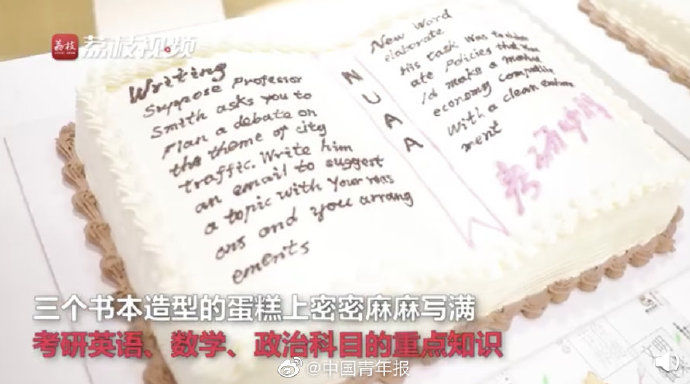 荔枝
荔枝视频
Writing
Suppose Professor
Smith asks you to
Plan a debate on
the theme of city
traffic. Write him
an email to suggest
a topic with your reas
ons and you arrang
ements
NUAA
New Word
elaborate
His task was to
ate Policies that
economy
with a clean
ment
考研
三个书本造型的蛋糕上密密麻麻写满
考研英语、数学、政治科目的重点知识
@中国青年报